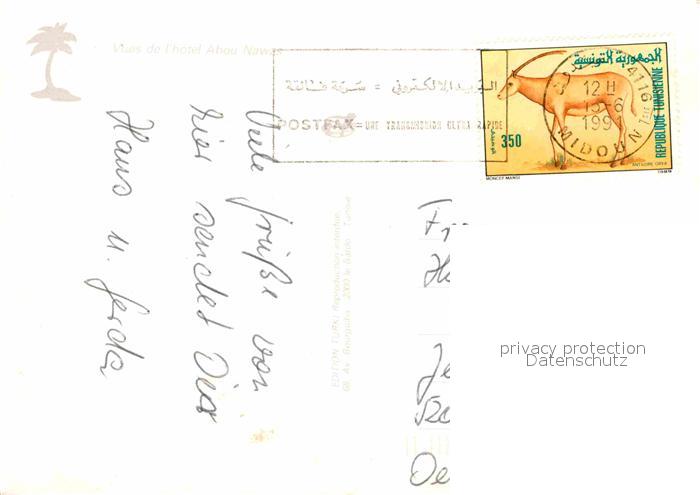 Vues de l'hotel Abou Nawas
البريد الالكتروني = سرعة فائقة
POSTFAX = UNE TRANSMISSION ULTRA RAPIDE
الجمهورية التونسية
REPUBLIQUE TUNISIENNE
350
MONCEF MANSI
ANTILOPE ORYX
4116
12 H
15-6
199
MIDOUN
Viele Grüße von
hier sendet Dir
Hans u. Gerda
EDITION TURKI Reproduction interdite
68 Av. Bourguiba 2000 le Bardo Tunisie
Fr
He
Je
Oe
privacy protection
Datenschutz